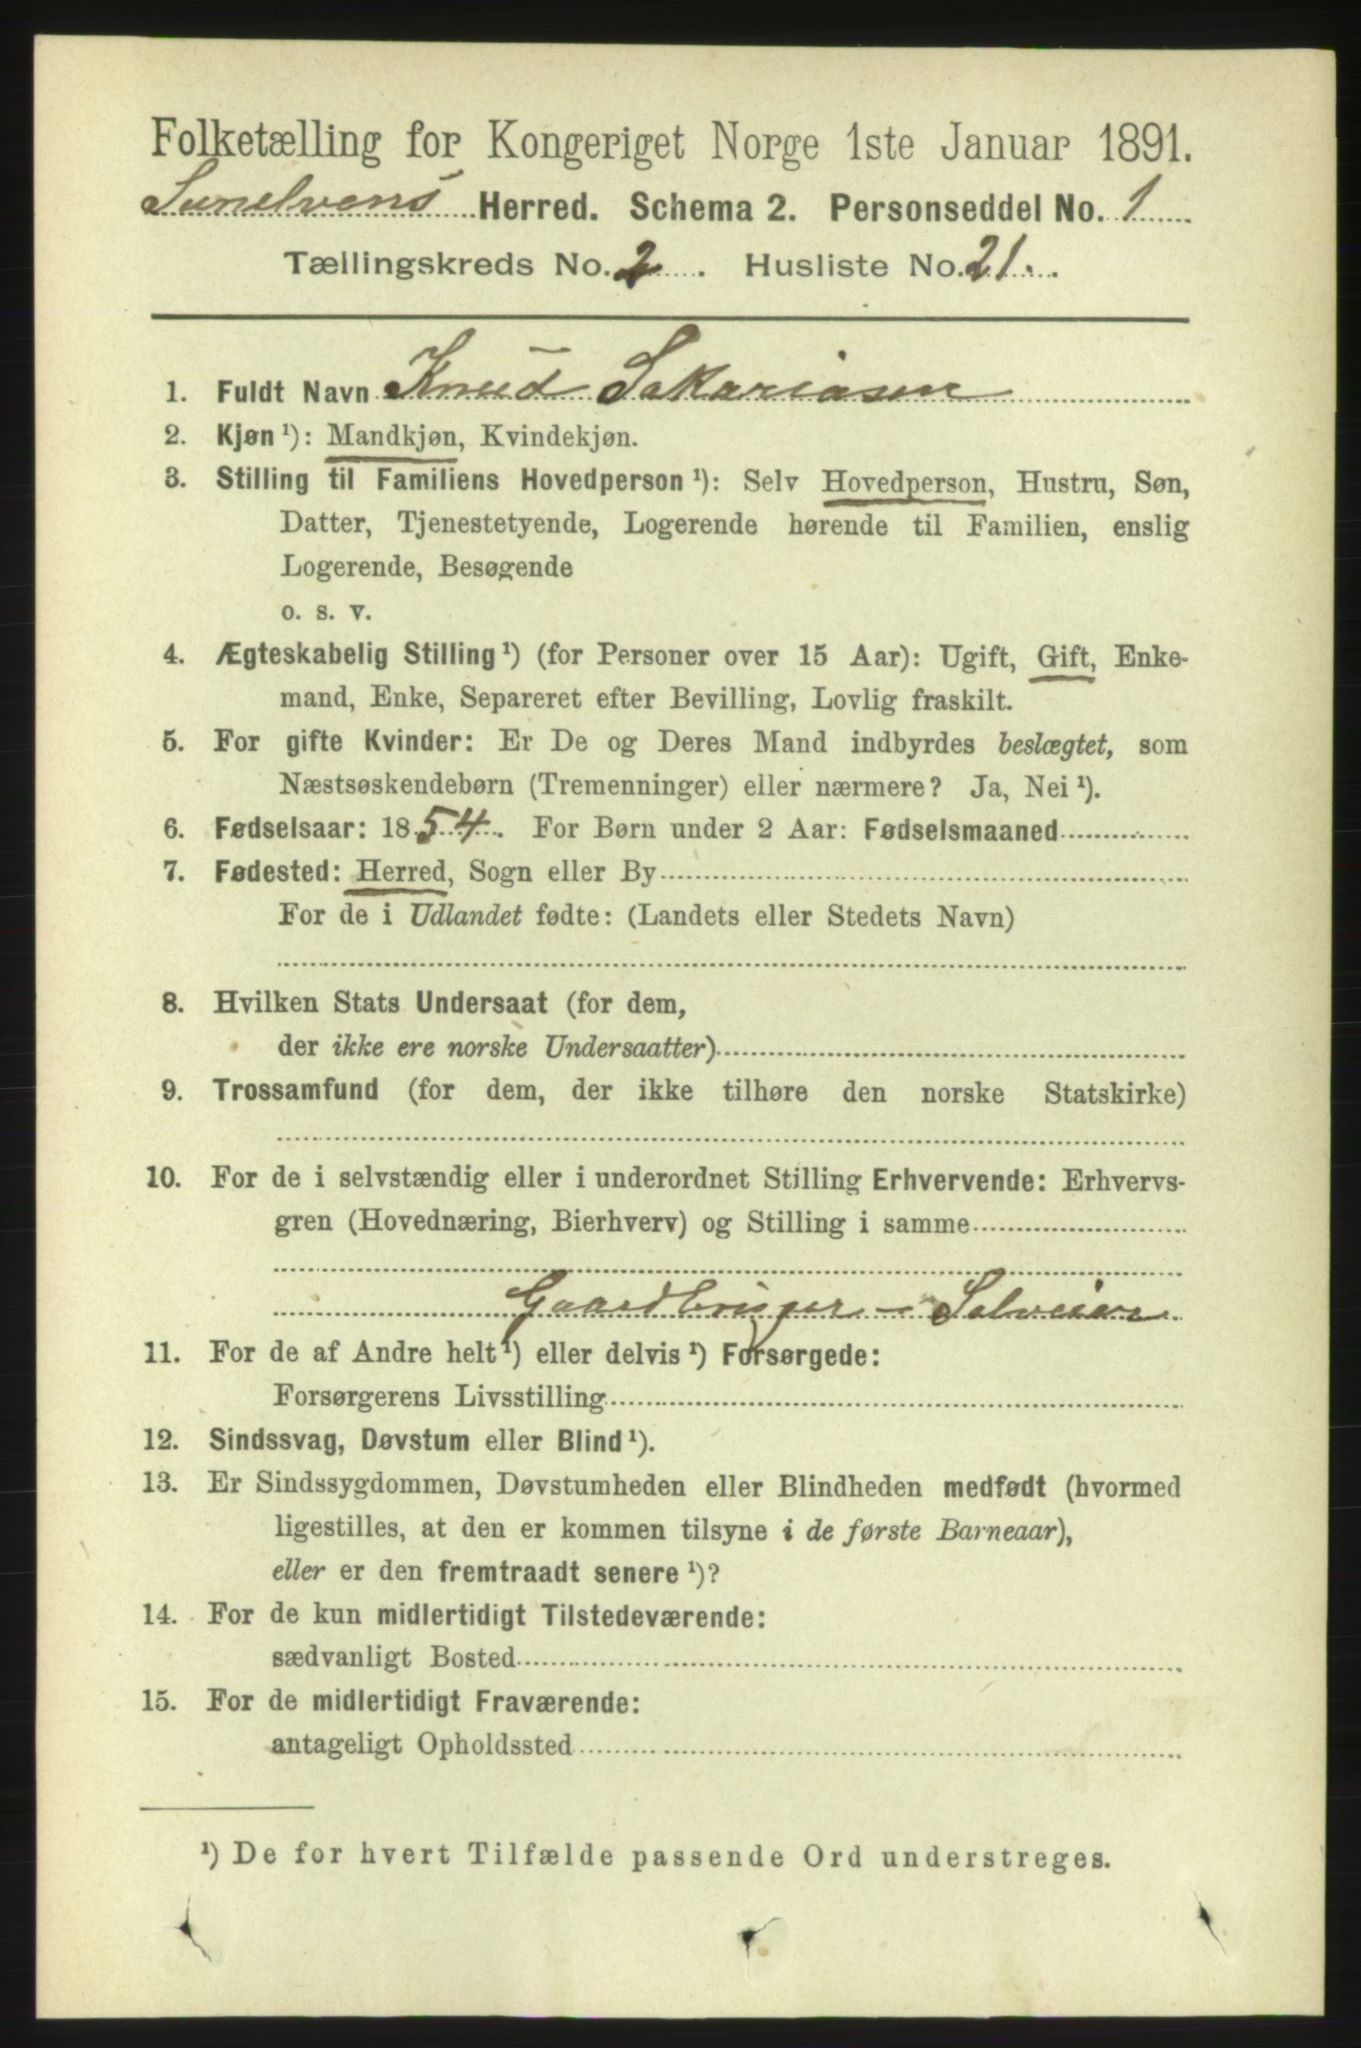 Folketælling for Kongeriget Norge 1ste Januar 1891.
Sunelvens Herred. Schema 2. Personseddel No. 1
Tællingskreds No. 2. Husliste No. 21.
1. Fuldt Navn Knud Sakariasen
2. Kjøn ¹): Mandkjøn, Kvindekjøn.
3. Stilling til Familiens Hovedperson ¹): Selv Hovedperson, Hustru, Søn,
Datter, Tjenestetyende, Logerende hørende til Familien, enslig
Logerende, Besøgende
o. s. v.
4. Ægteskabelig Stilling ¹) (for Personer over 15 Aar): Ugift, Gift, Enke-
mand, Enke, Separeret efter Bevilling, Lovlig fraskilt.
5. For gifte Kvinder: Er De og Deres Mand indbyrdes beslægtet, som
Næstsøskendebørn (Tremenninger) eller nærmere? Ja, Nei ¹).
6. Fødselsaar: 1854. For Børn under 2 Aar: Fødselsmaaned
7. Fødested: Herred, Sogn eller By
For de i Udlandet fødte: (Landets eller Stedets Navn)
8. Hvilken Stats Undersaat (for dem,
der ikke ere norske Undersaatter)
9. Trossamfund (for dem, der ikke tilhøre den norske Statskirke)
10. For de i selvstændig eller i underordnet Stilling Erhvervende: Erhvervs-
gren (Hovednæring, Bierhverv) og Stilling i samme
Gaardbruger - Selveier
11. For de af Andre helt ¹) eller delvis ¹) Forsørgede:
Forsørgerens Livsstilling
12. Sindssvag, Døvstum eller Blind ¹).
13. Er Sindssygdommen, Døvstumheden eller Blindheden medfødt (hvormed
ligestilles, at den er kommen tilsyne i de første Barneaar),
eller er den fremtraadt senere ¹)?
14. For de kun midlertidigt Tilstedeværende:
sædvanligt Bosted
15. For de midlertidigt Fraværende:
antageligt Opholdssted
¹) De for hvert Tilfælde passende Ord understreges.